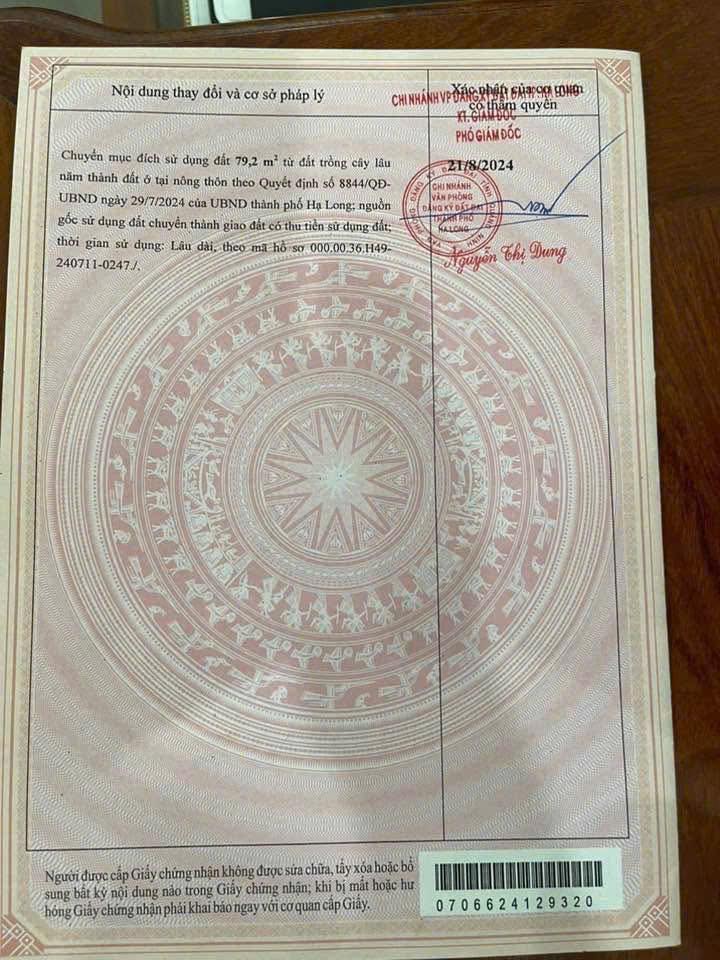 Nội dung thay đổi và cơ sở pháp lý
Xác nhận của cơ quan
có thẩm quyền
CHI NHÁNH VP ĐĂNG KÝ ĐẤT ĐAI TP. HẠ LONG
KT. GIÁM ĐỐC
PHÓ GIÁM ĐỐC
Chuyển mục đích sử dụng đất 79,2 m² từ đất trồng cây lâu
năm thành đất ở tại nông thôn theo Quyết định số 8844/QĐ-
UBND ngày 29/7/2024 của UBND thành phố Hạ Long; nguồn
gốc sử dụng đất chuyển thành giao đất có thu tiền sử dụng đất;
thời gian sử dụng: Lâu dài, theo mã hồ sơ 000.00.36.H49-
240711-0247./.
21/8/2024
CHI NHÁNH
VĂN PHÒNG
ĐĂNG KÝ ĐẤT ĐAI
THÀNH PHỐ
HẠ LONG
Nguyễn Thị Dung
Người được cấp Giấy chứng nhận không được sửa chữa, tẩy xóa hoặc bổ
sung bất kỳ nội dung nào trong Giấy chứng nhận; khi bị mất hoặc hư
hỏng Giấy chứng nhận phải khai báo ngay với cơ quan cấp Giấy.
0706624129320